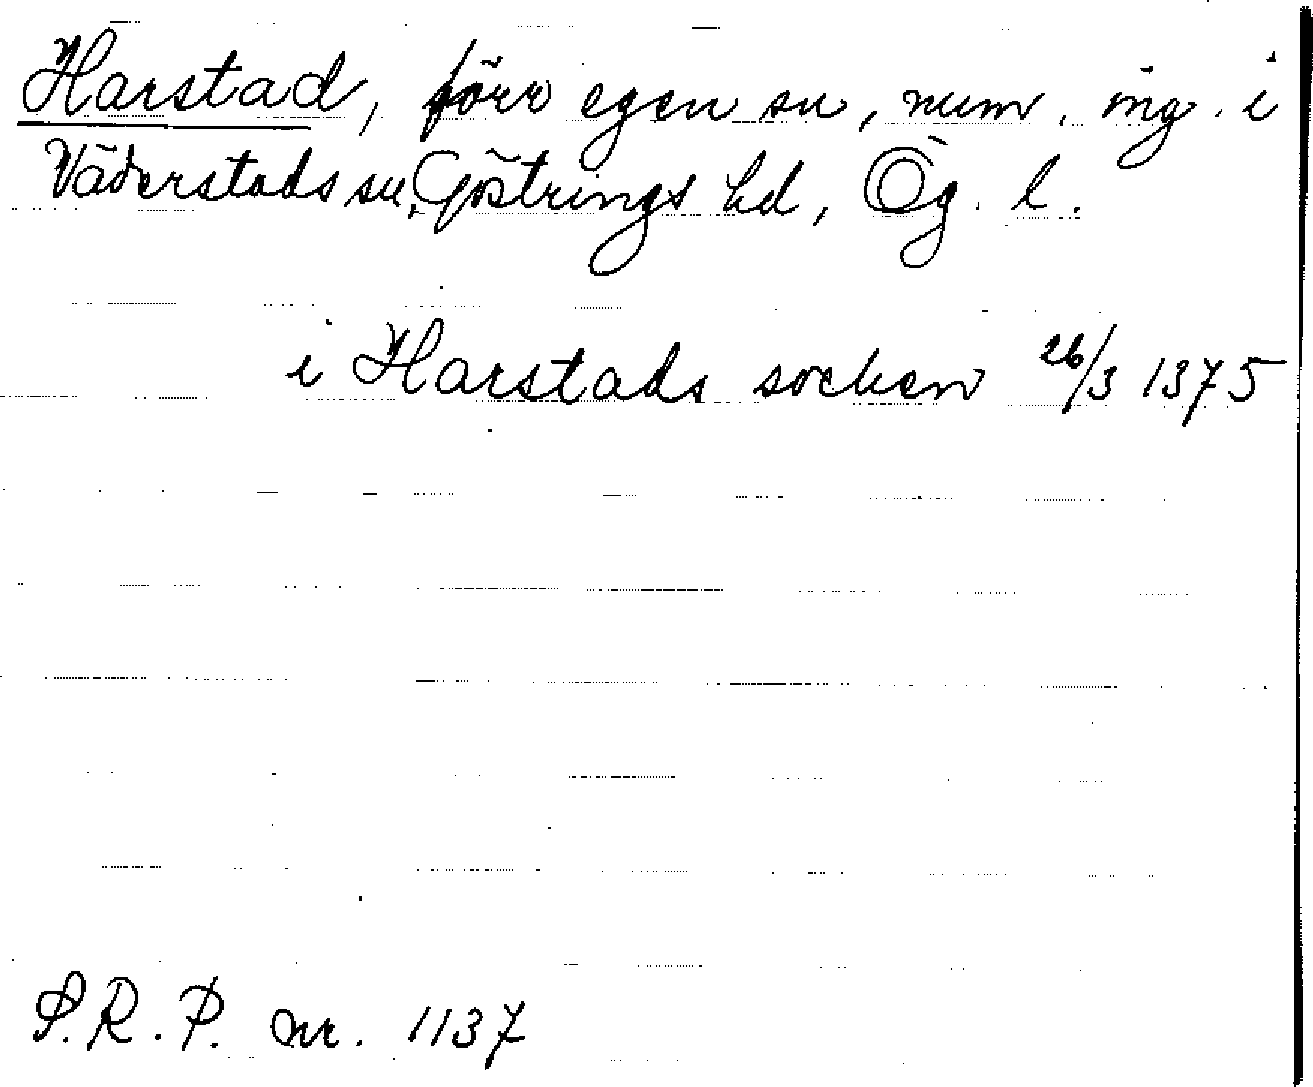 Harstad, förr egen sn, num. ing. i
Väderstads sn, Göstrings hd, Ög. l.
i Harstads socken 26/3 1375
S.R.P. nr. 1137